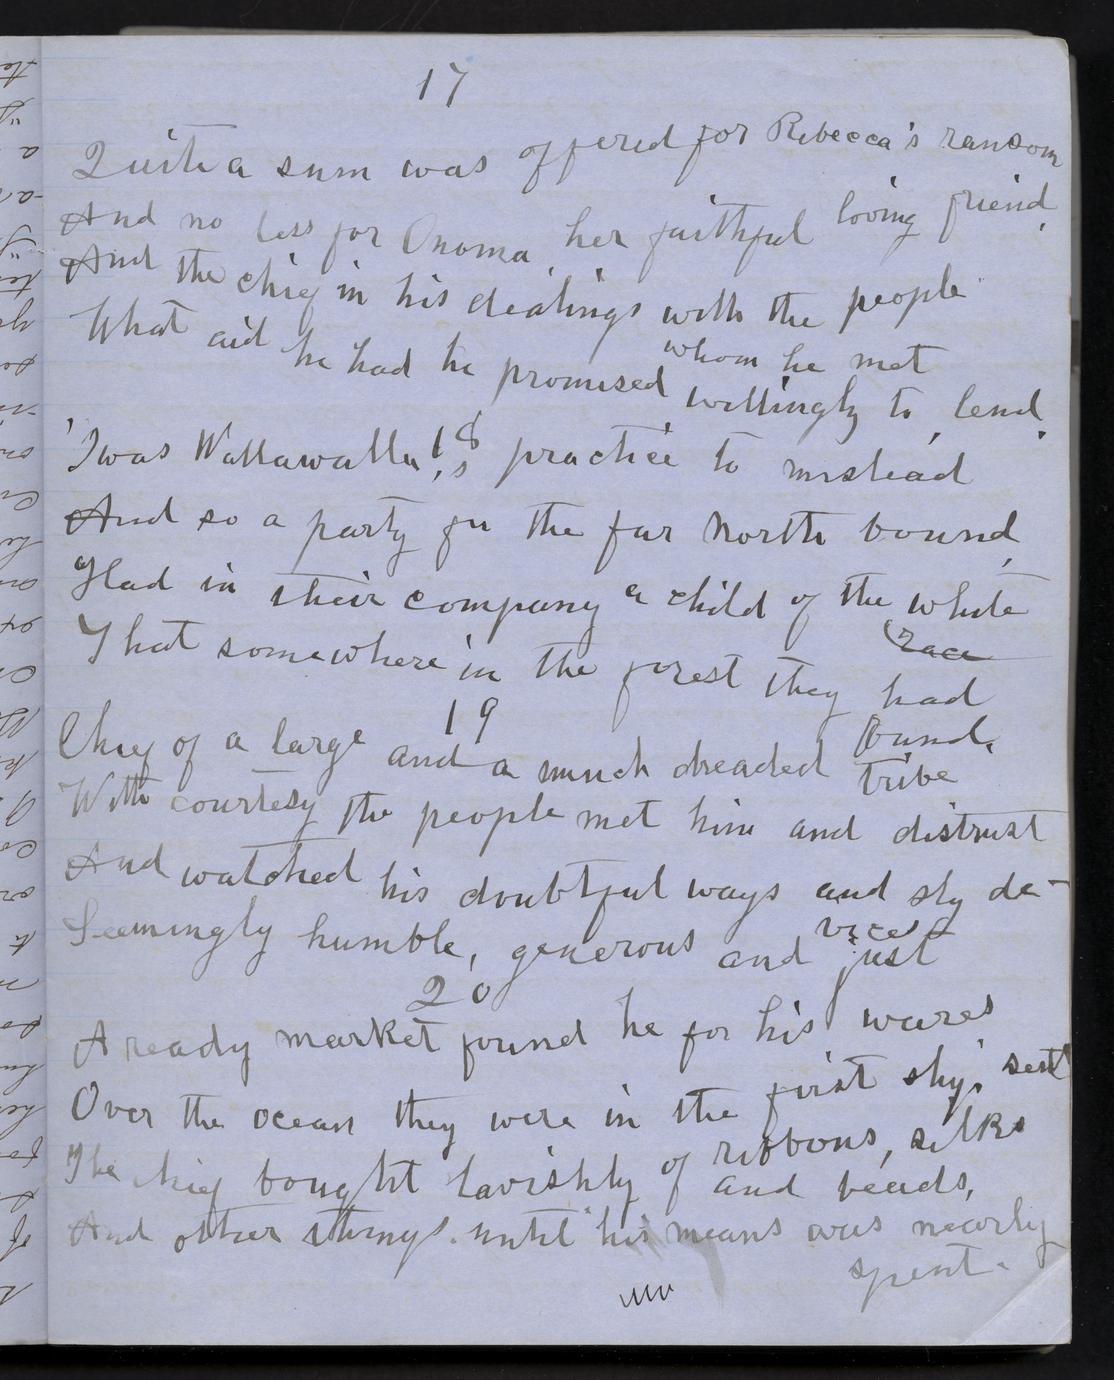 17
Quite a sum was offered for Rebecca's ransom
And no less for Onoma, her faithful loving friend,
And the chief in his dealings with the people
whom he met
What aid he had he promised willingly to lend.
18
'Twas Wattawatta's practice to mislead
And so a party for the far North bound,
Had in their company a child of the white
race
That somewhere in the forest they had
found.
19
Chief of a large and a much dreaded tribe
With courtesy the people met him and distrust
And watched his doubtful ways and sly de-
vices
Seemingly humble, generous and just
20
A ready market found he for his wares
Over the ocean they were in the first ship sent
The chief bought lavishly of ribbons, silks
and beads,
And other things. until his means was nearly
spent.